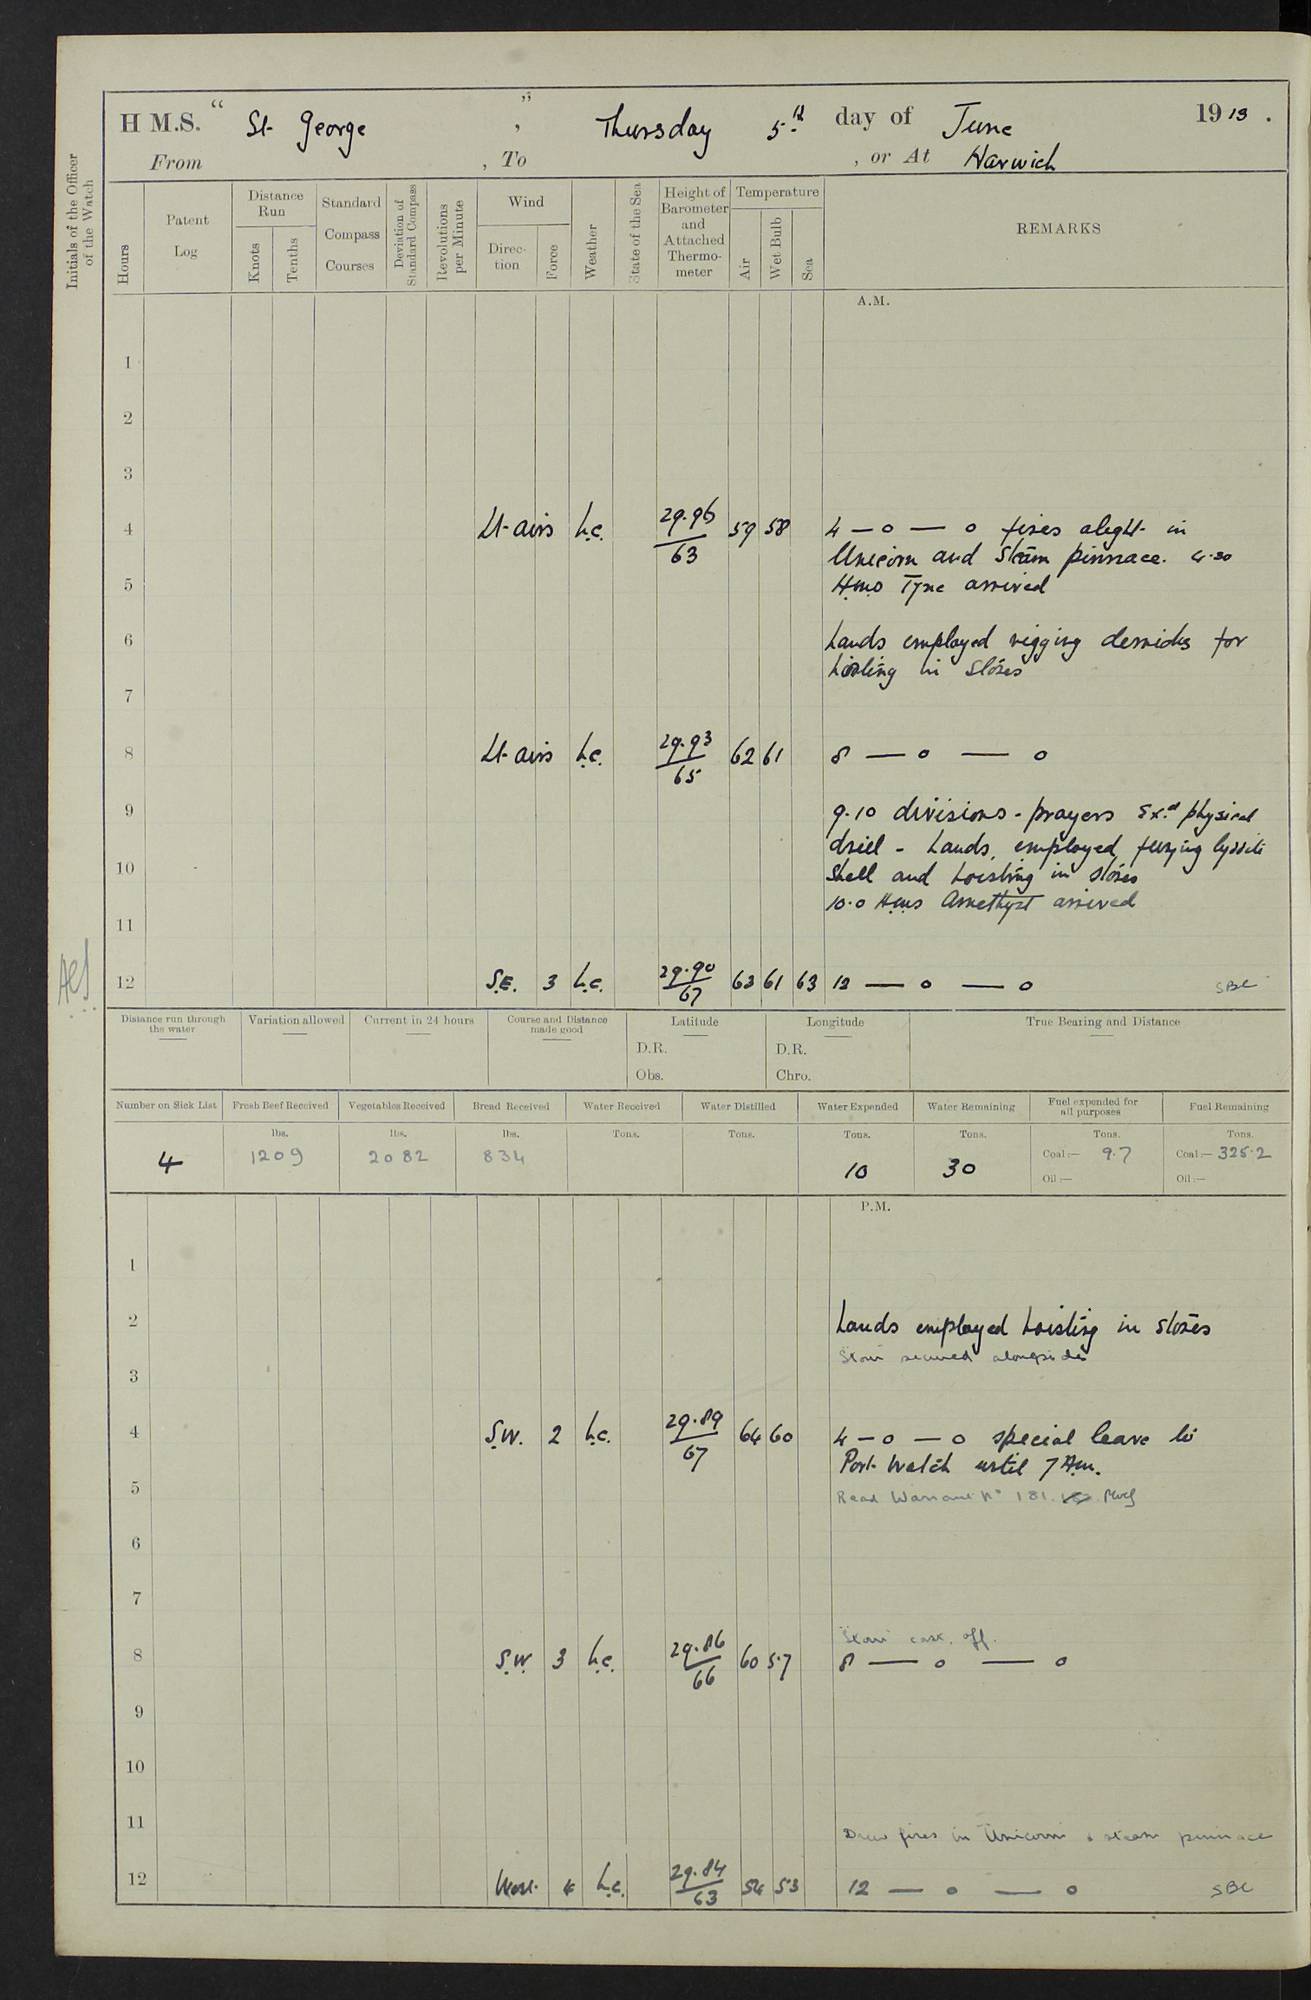 H M.S. " St. George " , Thursday 5th day of June 1913 .
From , To , or At Harwich
Initials of the Officer of the Watch
Hours
Patent Log
Distance Run
Knots
Tenths
Standard Compass Courses
Deviation of Standard Compass
Revolutions per Minute
Wind
Direction
Force
Weather
State of the Sea
Height of Barometer and Attached Thermometer
Temperature
Air
Wet Bulb
Sea
REMARKS
A.M.
1
2
3
4 Lt airs b.c. 29.96 / 63 59 58 4 — o — o fires alight in
Unicorn and Steam pinnace. 4.30
5 HMS Tyne arrived
6 hands employed rigging derricks for
hoisting in Stores
7
8 Lt airs b.c. 29.93 / 65 62 61 8 — o — o
9 9.10 divisions - prayers Exd physical
drill - hands employed fuzing lyddite
10 Shell and hoisting in stores
10.0 HMS Amethyst arrived
11
12 S.E. 3 b.c. 29.90 / 67 63 61 63 12 — o — o SBC
Distance run through the water
Variation allowed
Current in 24 hours
Course and Distance made good
Latitude
D.R.
Obs.
Longitude
D.R.
Chro.
True Bearing and Distance
Number on Sick List Fresh Beef Received Vegetables Received Bread Received Water Received Water Distilled Water Expended Water Remaining Fuel expended for all purposes Fuel Remaining
lbs. lbs. lbs. Tons. Tons. Tons. Tons. Tons. Tons.
4 1209 2082 834 10 30 Coal :— 9.7 Coal :— 325.2
Oil :— Oil :—
P.M.
1
2 hands employed hoisting in stores
secured alongside
3
4 S.W. 2 b.c. 29.89 / 67 64 60 4 — o — o special leave to
Port watch until 7 Am.
5 Read Warrant No 181.
6
7
cast off.
8 S.W. 3 b.c. 29.86 / 66 60 57 8 — o — o
9
10
11
Drew fires in Unicorn & steam pinnace
12 West 4 b.c. 29.84 / 63 54 53 12 — o — o SBC